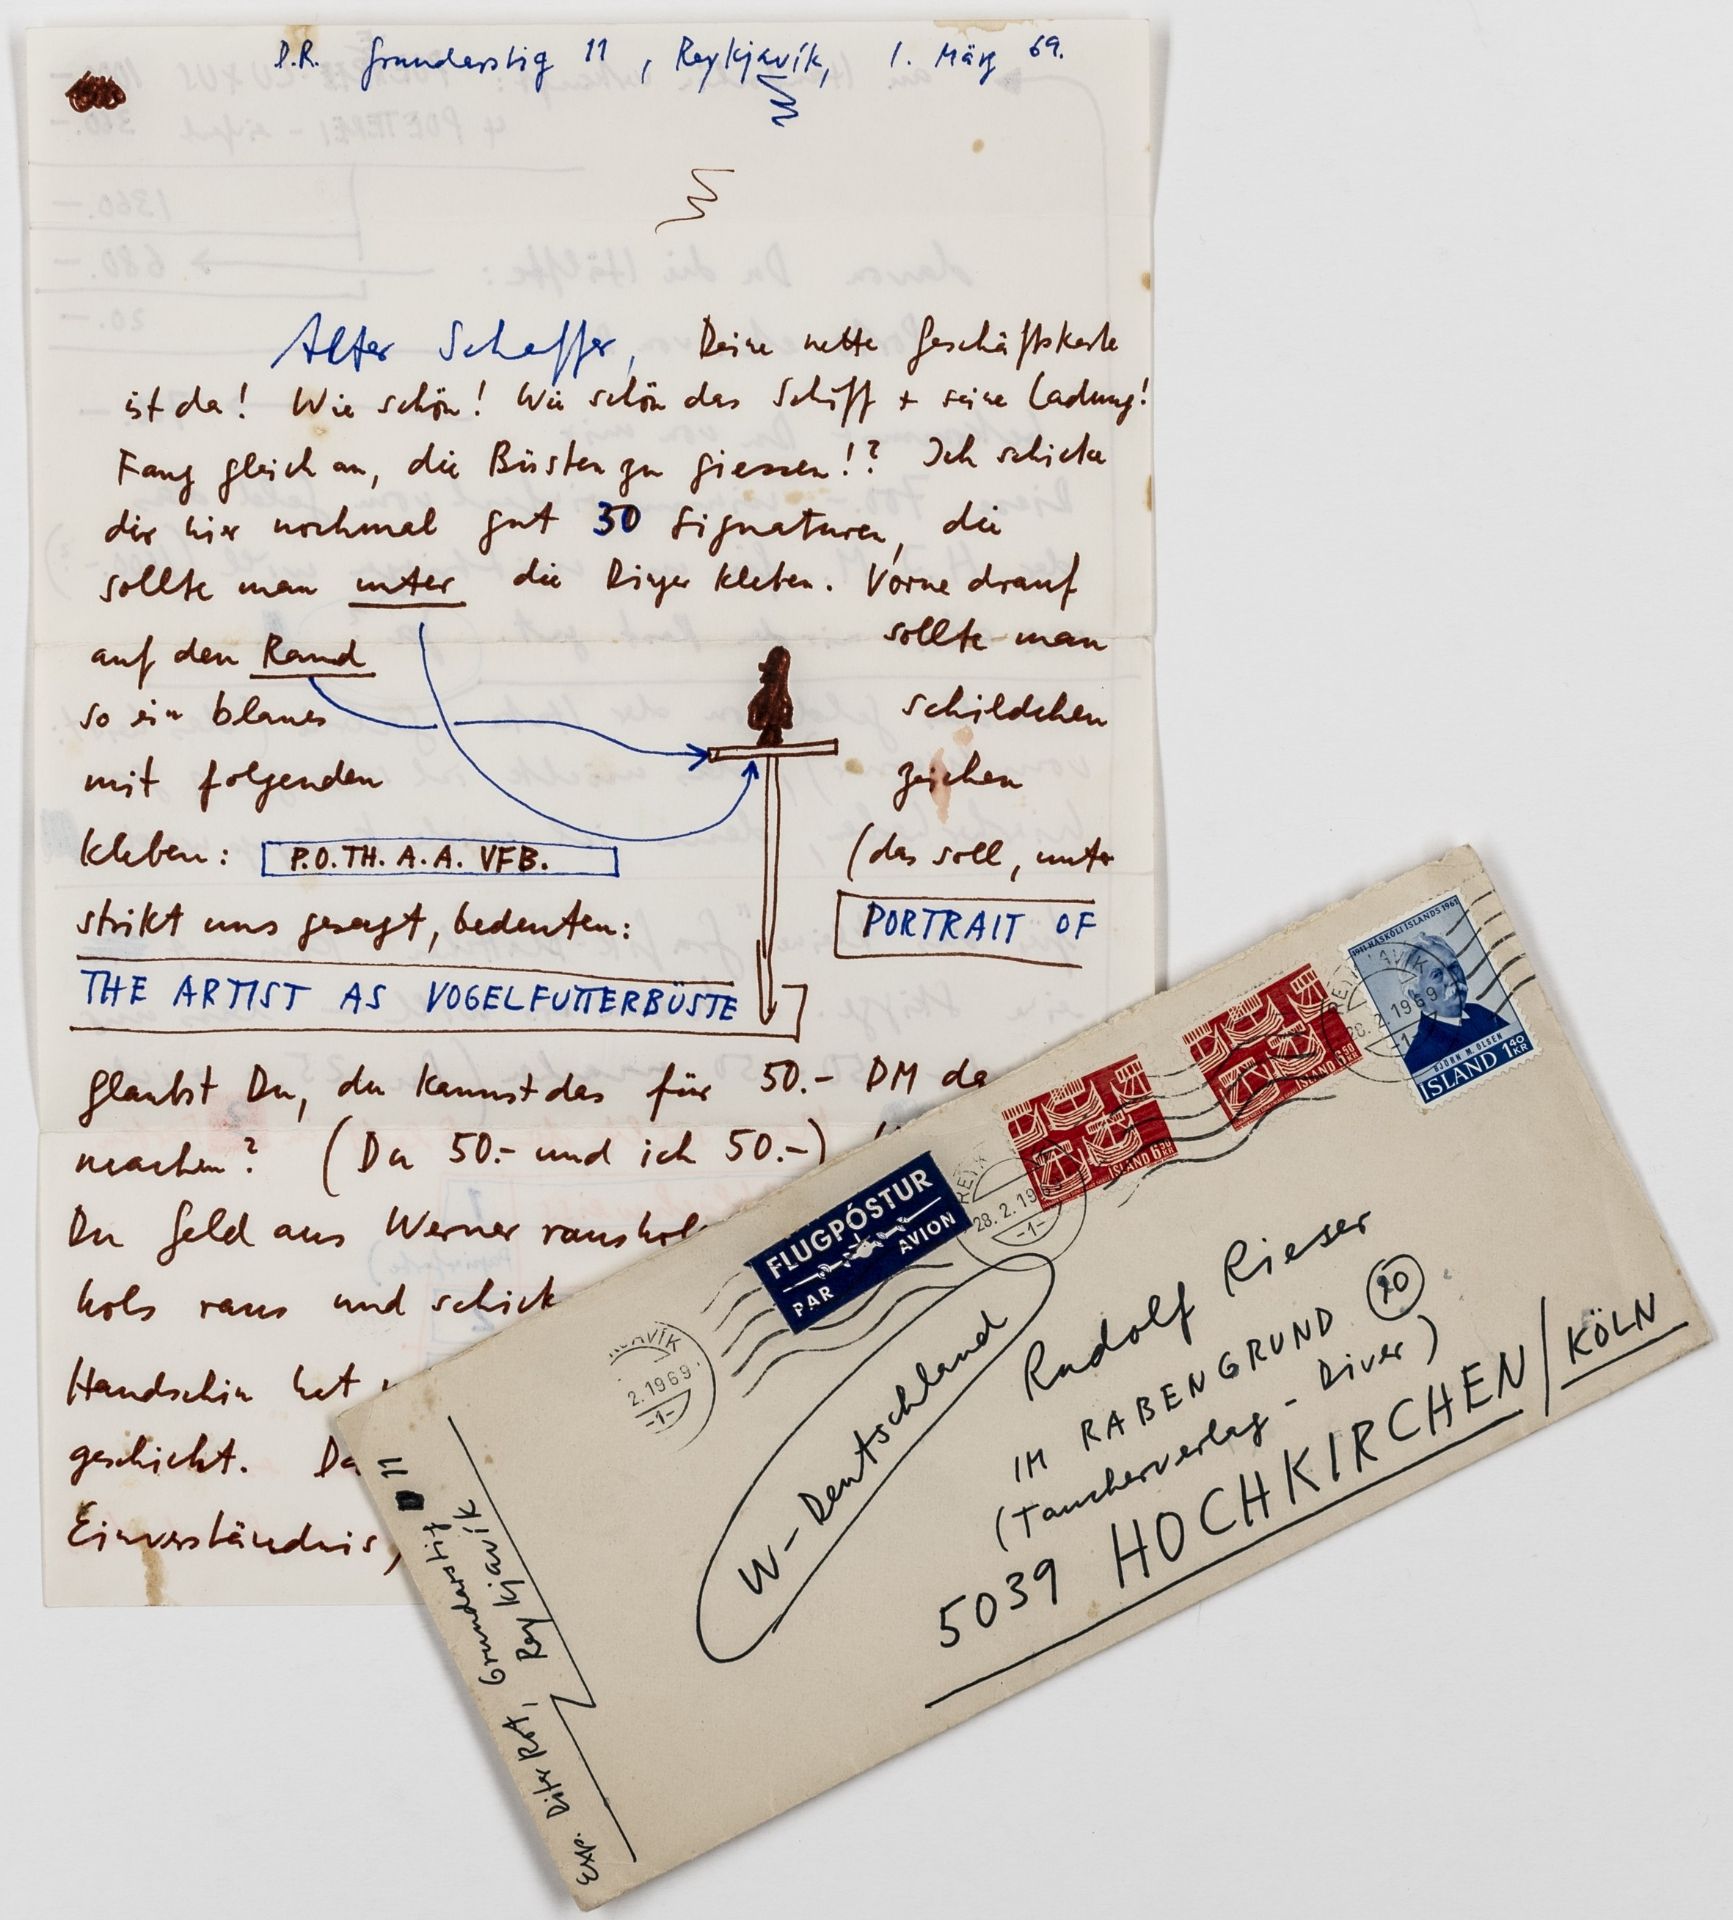 D.R. Grundarstig 11, Reykjavík, 1. März 69.
Alter Schaffer, Deine nette Geschäftskarte
ist da! Wie schön! Wie schön das Schiff + seine Ladung!
Fang gleich an, die Büsten zu giessen!? Ich schicke
dir hier nochmal gut 30 Signaturen, die
sollte man unter die Dinger kleben. Vorne drauf
auf den Rand sollte man
so ein blaues schildchen
mit folgenden zeichen
kleben: P.O.TH.A.A. VFB. (das soll, unter
strikt uns gesagt, bedeuten: PORTRAIT OF
THE ARTIST AS VOGELFUTTERBÜSTE
glaubst Du, du kannst das für 50.- DM da
machen? (Du 50.- und ich 50.-)
Du Geld aus Werner raushol
hols raus und schick
Handschin hat
geschickt. Da
Einverständnis,
FLUGPÓSTUR
PAR AVION
REYK
28.2.1969
-1-
ÍSLAND 6 50 KR
ÍSLAND 6 50 KR
1911-HÁSKÓLI ÍSLANDS 1961
BJÖRN M. OLSEN
ÍSLAND 1 40 KR
REYKJAVÍK
28.2.1969
-1-
AVÍK
2.1969
-1-
W-Deutschland
Rudolf Rieser
IM RABENGRUND 20
(Taucherverlag - Diver)
5039 HOCHKIRCHEN/KÖLN
Exp. Diter Rot, Grundarstig 11
Reykjavík